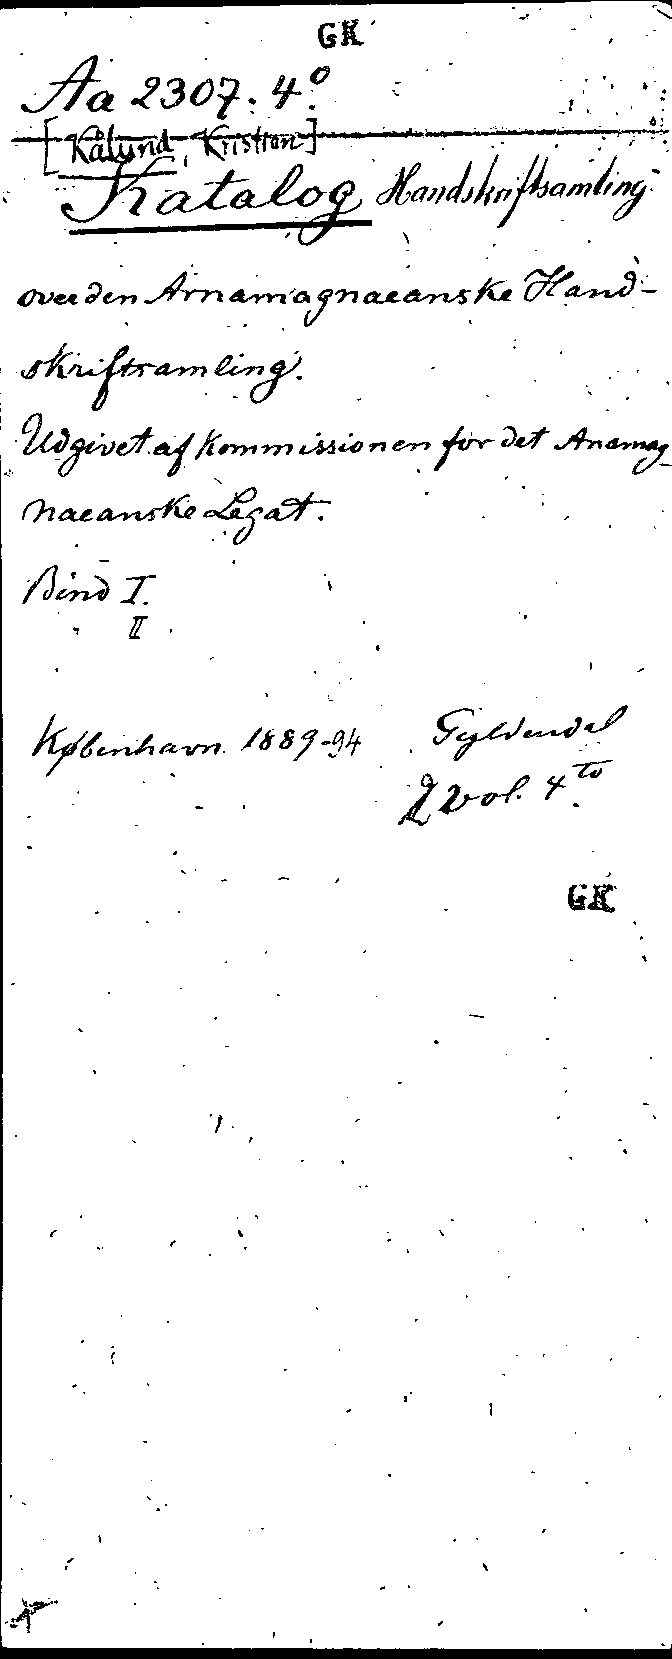 GK
Aa 2307. 4º.
[Kålund, Kristian]
Katalog Handskriftsamling
over den Arnamagnaeanske Hand-
skriftsamling.
Udgivet af Kommissionen for det Anamag-
naeanske Legat.
Bind I.
II
København 1889-94 Gyldendal
2 vol. 4to.
GK